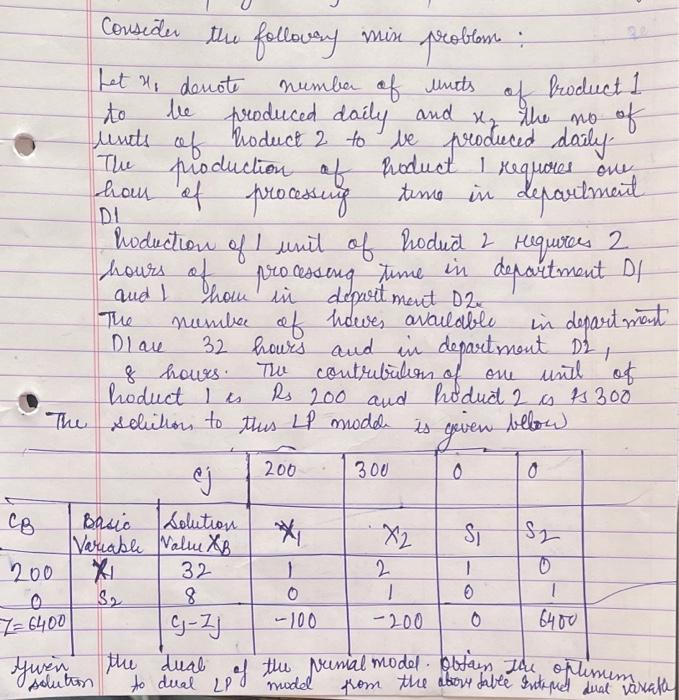 Consider the followery mix problem :
Let x₁ denote number of units of Product 1
to be produced daily and x₂ the no of
units of Product 2 to be produced daily.
The production of Product 1 requires one
hour of processing time in department
D1
Production of 1 unit of Product 2 requires 2
hours of processing time in department D1
and 1 hour in department D2.
The number of hours available in department
D1 are 32 hours and in department D2,
8 hours. The contribution of one unit of
Product 1 is Rs 200 and Product 2 is Rs 300
The solution to this LP model is given below
cj 200 300 0 0
CB Basic Variable Solution Value XB X₁ X₂ S₁ S₂
200 X₁ 32 1 2 1 0
0 S₂ 8 0 1 0 1
Z=6400 Cj-Zj -100 -200 0 6400
Given the dual of the primal model. Obtain the optimum
solution to dual LP model from the above table dual variable